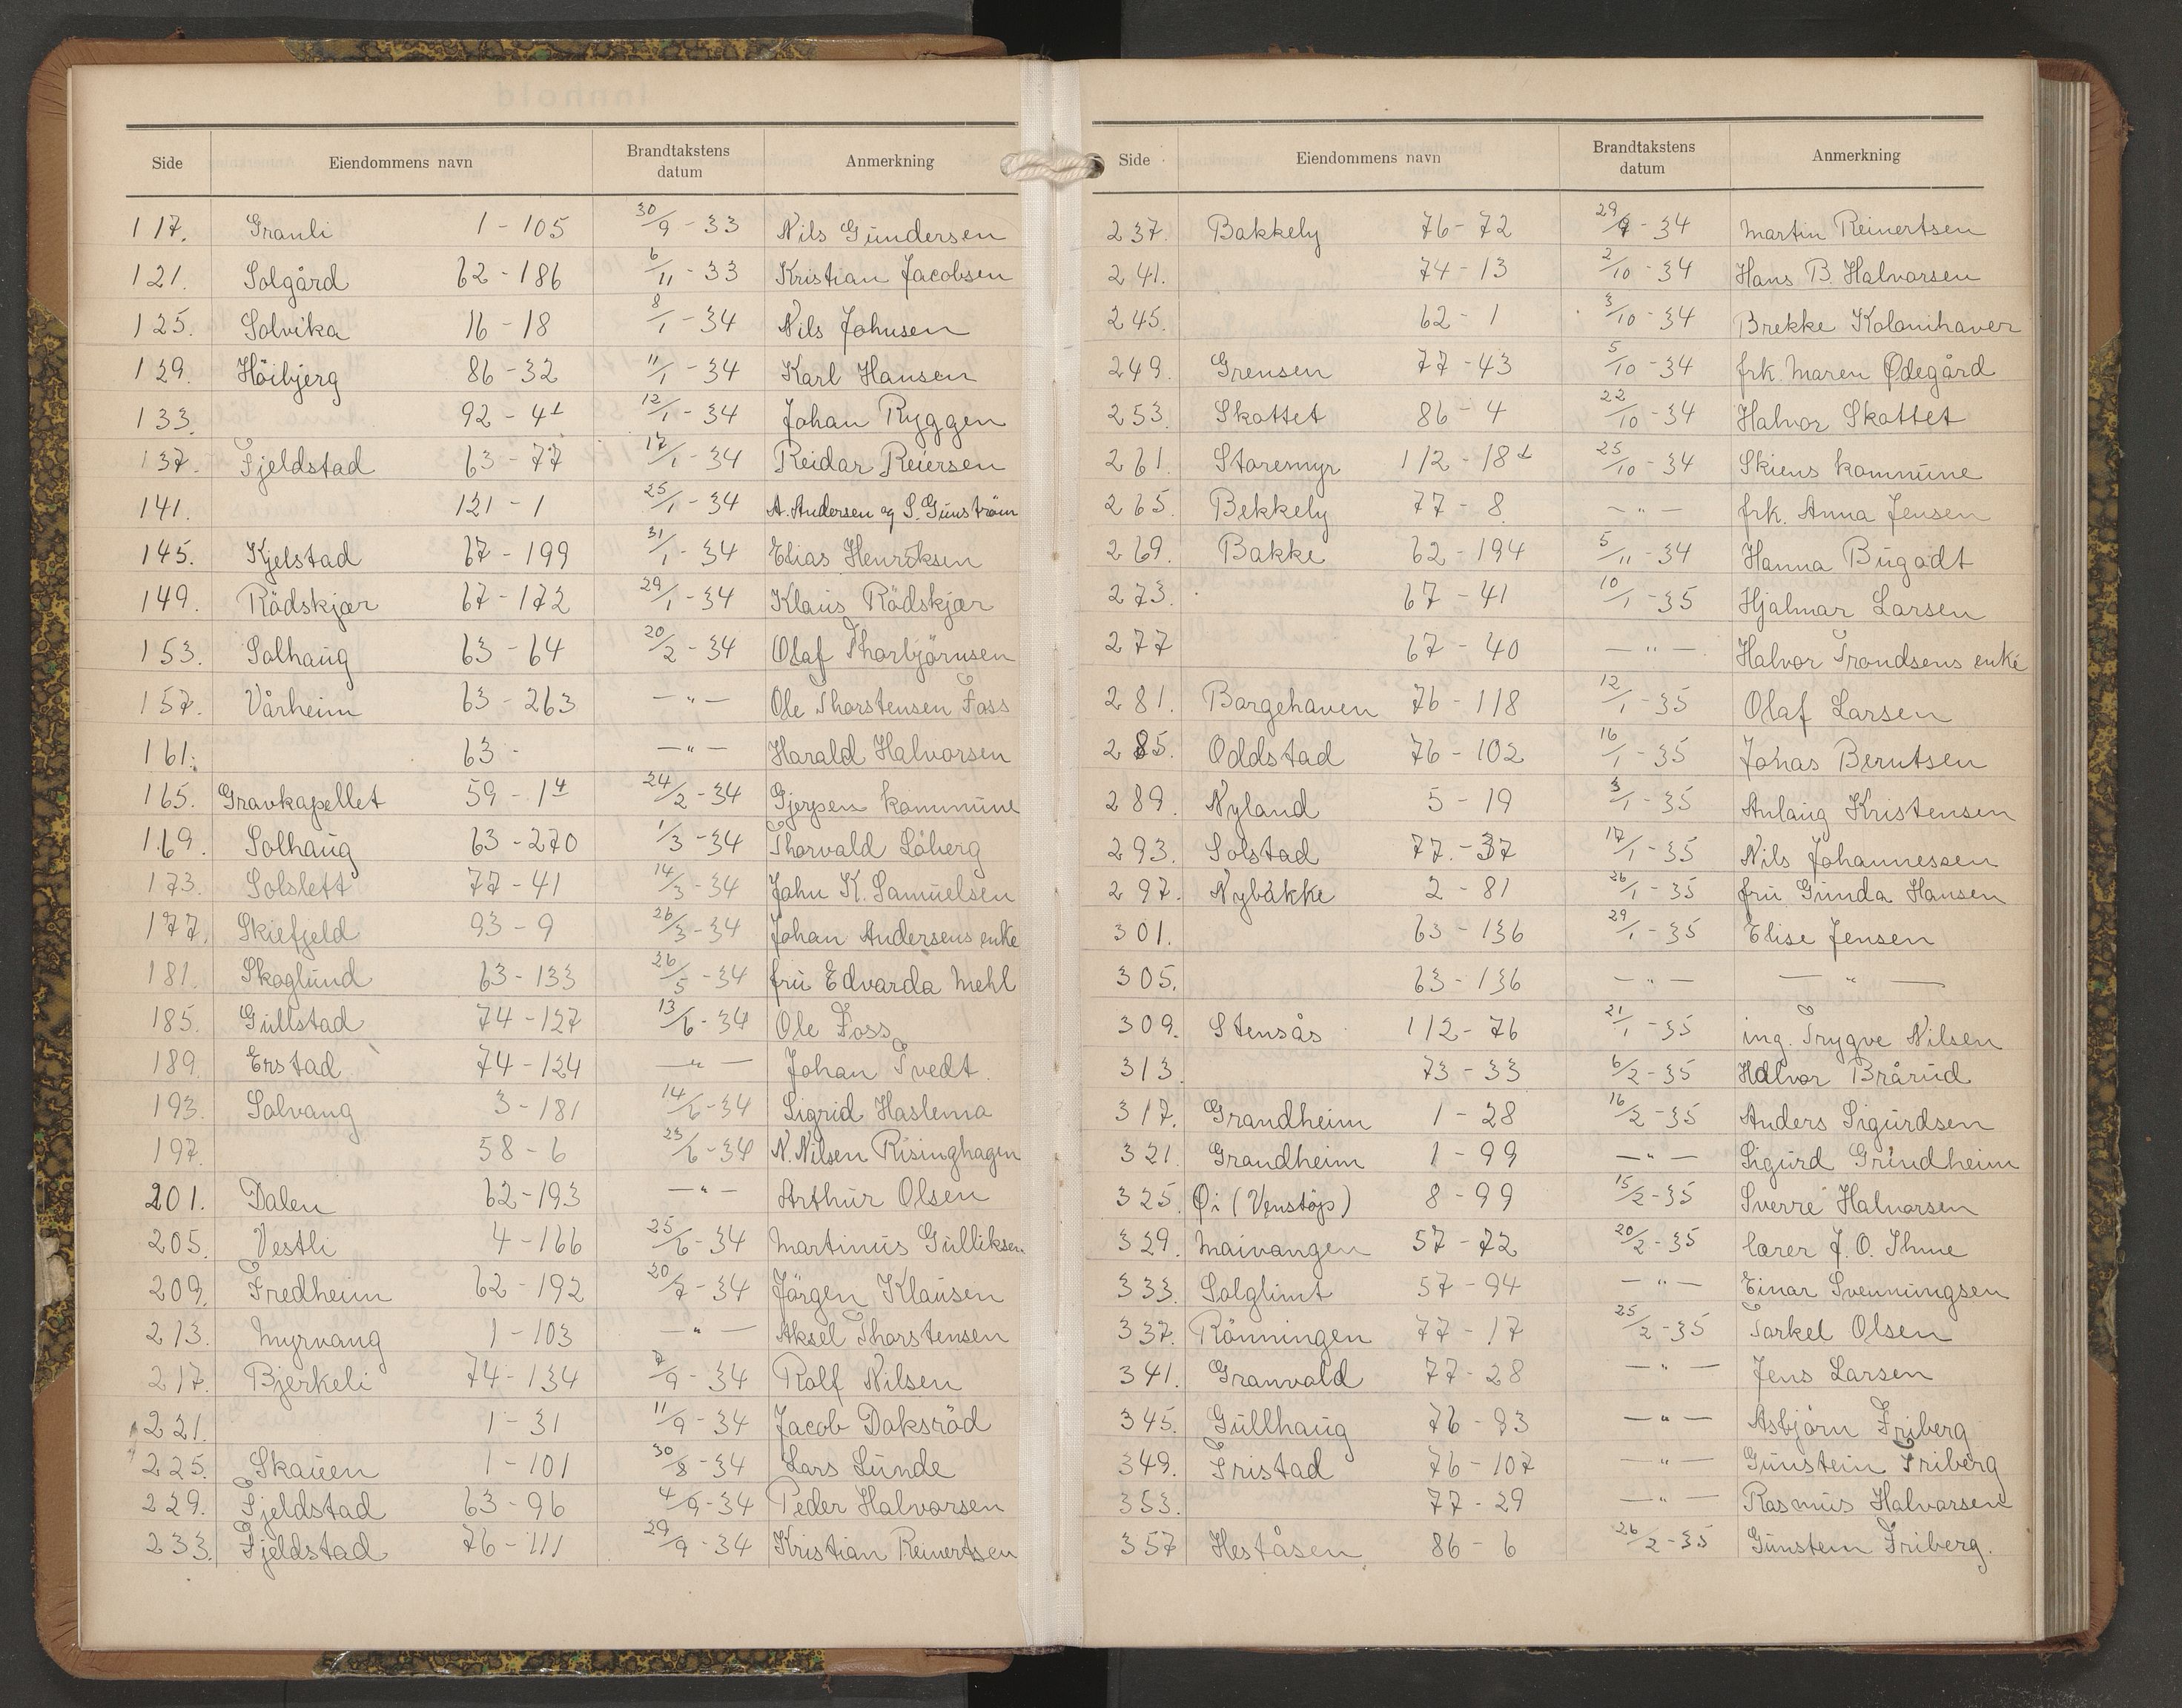 Side Eiendommens navn Brandtakstens datum Anmerkning
117. Granli 1 - 105 30/9 - 33 Nils Gundersen
121. Solgård 62 - 186 6/11 - 33 Kristian Jacobsen
125. Solvika 16 - 18 8/1 - 34 Nils Johnsen
129. Höibjerg 86 - 32 11/1 - 34 Karl Hansen
133. 92 - 4 12/1 - 34 Johan Ryggen
137. Fjeldstad 63 - 77 17/1 - 34 Reidar Reiersen
141. 121 - 1 25/1 - 34 A. Andersen og S. Gunström
145. Kjelstad 67 - 199 31/1 - 34 Elias Henriksen
149. Rödskjær 67 - 172 29/1 - 34 Klaus Rödskjær
153. Solhaug 63 - 64 20/2 - 34 Olaf Thorbjörnsen
157. Vårheim 63 - 263 — " — Ole Thorstensen Foss
161. 63 - — " — Harald Halvorsen
165. Gravkapellet 59 - 1⁴ 24/2 - 34 Gjerpen kommune
169. Solhaug 63 - 270 1/3 - 34 Thorvald Löberg
173. Solslett 77 - 41 14/3 - 34 John K. Samuelsen
177. Skiefjeld 93 - 9 26/3 - 34 Johan Andersens enke
181. Skoglund 63 - 133 26/5 - 34 fru Edvarda Mehl
185. Gullstad 74 - 127 13/6 - 34 Ole Foss
189. Erstad 74 - 124 — " — Johan Tvedt.
193. Solvang 3 - 181 14/6 - 34 Sigrid Haslemo
197. 58 - 6 23/6 - 34 N. Nilsen Risinghagen
201. Dalen 62 - 193 — " — Arthur Olsen
205. Vestli 4 - 166 25/6 - 34 Martinus Gulliksen
209. Fredheim 62 - 192 20/7 - 34 Jörgen Klausen
213. Myrvang 1 - 103 — " — Aksel Thorstensen
217. Bjerkeli 74 - 134 7/9 - 34 Rolf Nilsen
221. 1 - 31 11/9 - 34 Jacob Doksröd
225. Skauen 1 - 101 30/8 - 34 Lars Lunde
229. Fjeldstad 63 - 96 4/9 - 34 Peder Halvorsen
233. Fjeldstad 76 - 111 29/9 - 34 Kristian Reinertsen
Side Eiendommens navn Brandtakstens datum Anmerkning
237. Bakkely 76 - 72 29/9 - 34 Martin Reinertsen
241. 74 - 13 2/10 - 34 Hans B. Halvorsen
245. 62 - 1 3/10 - 34 Brekke Kolonihaver
249. Grensen 77 - 43 5/10 - 34 frk. Maren Ødegård
253. Skottet 86 - 4 22/10 - 34 Halvor Skottet
261. Storemyr 112 - 18 25/10 - 34 Skiens kommune
265. Bekkely 77 - 8 — " — frk. Anna Jensen
269. Bakke 62 - 194 5/11 - 34 Hanna Bugodt
273. 67 - 41 10/1 - 35 Hjalmar Larsen
277 67 - 40 — " — Halvor Trondsens enke
281. Borgehaven 76 - 118 12/1 - 35 Olaf Larsen
285. Oddstad 76 - 102 16/1 - 35 Johas Berntsen
289. Nyland 5 - 19 3/1 - 35 Anlaug Kristensen
293. Solstad 77. - 37 17/1 - 35 Nils Johannessen
297. Nybakke 2 - 81 26/1 - 35 fru Gunda Hansen
301. 63 - 136 29/1 - 35 Elise Jensen
305. 63 - 136 — " — — " —
309. Stensås 112 - 76 21/1 - 35 ing. Trygve Nilsen
313. 73 - 33 6/2 - 35 Halvor Brårud
317. Grandheim 1 - 28 16/2 - 35 Anders Sigurdsen
321. Grandheim 1 - 99 — " — Sigurd Grindheim
325. Øi (Venstöp) 8 - 99 15/2 - 35 Sverre Halvorsen
329. Maivangen 57 - 72 20/2 - 35 lærer J. O. Thue
333. Solglimt 57 - 94 — " — Einar Svenningsen
337. Rönningen 77 - 17 25/2 - 35 Torkel Olsen
341. Granvold 77 - 28 — " — Jens Larsen
345. Gullhaug 76 - 93 — " — Asbjörn Friberg
349. Fristad 76 - 107 — " — Gunstein Friberg
353. 77 - 29 — " — Rasmus Halvorsen
357 Heståsen 86 - 6 26/2 - 35 Gunstein Friberg.